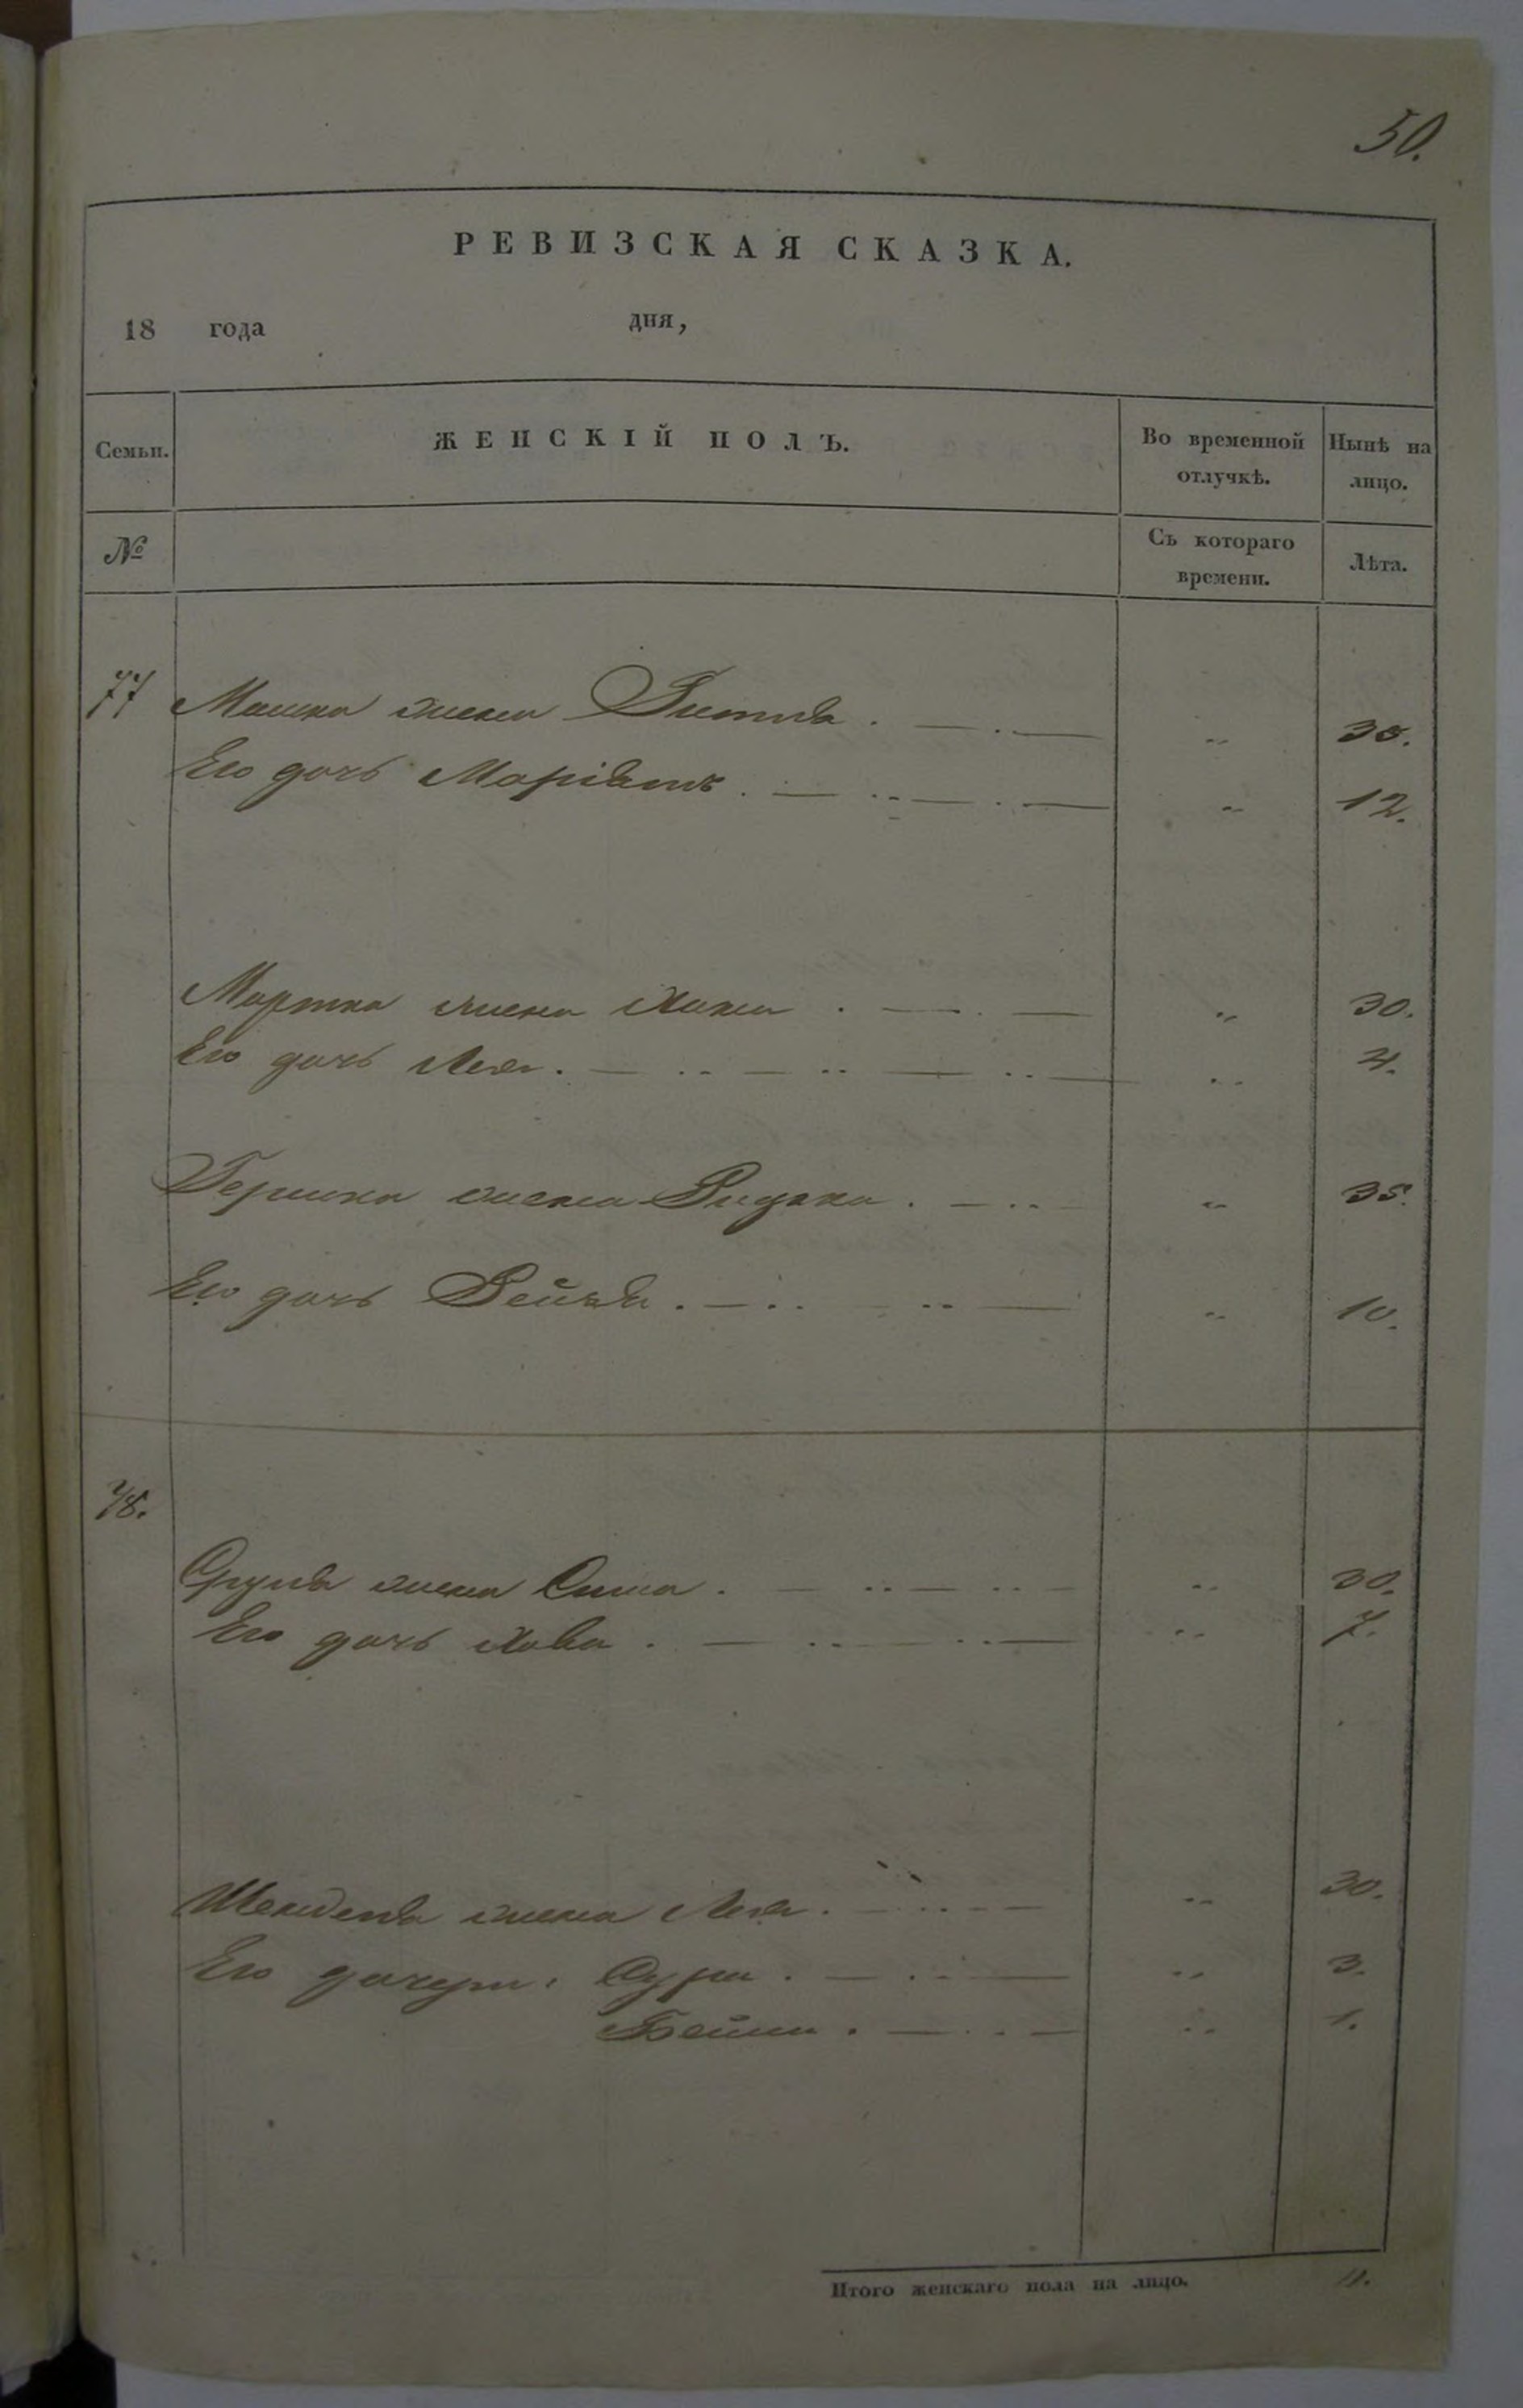 50.
РЕВИЗСКАЯ СКАЗКА.
18 года дня,
Семьи. ЖЕНСКІЙ ПОЛЪ. Во временной отлучкѣ. Нынѣ на лицо.
№ Съ котораго времени. Лѣта.
77 Мошка жена 30.
Его дочь Маріямъ 12.
Мортка жена Хана 30.
Его дочь Лея 4.
Гершка жена 35.
Его дочь 10.
78.
жена 30.
Его дочь Хава 7.
жена Лея 30.
Его дочери: Сура 3.
Бейла 1.
Итого женскаго пола на лицо. 11.